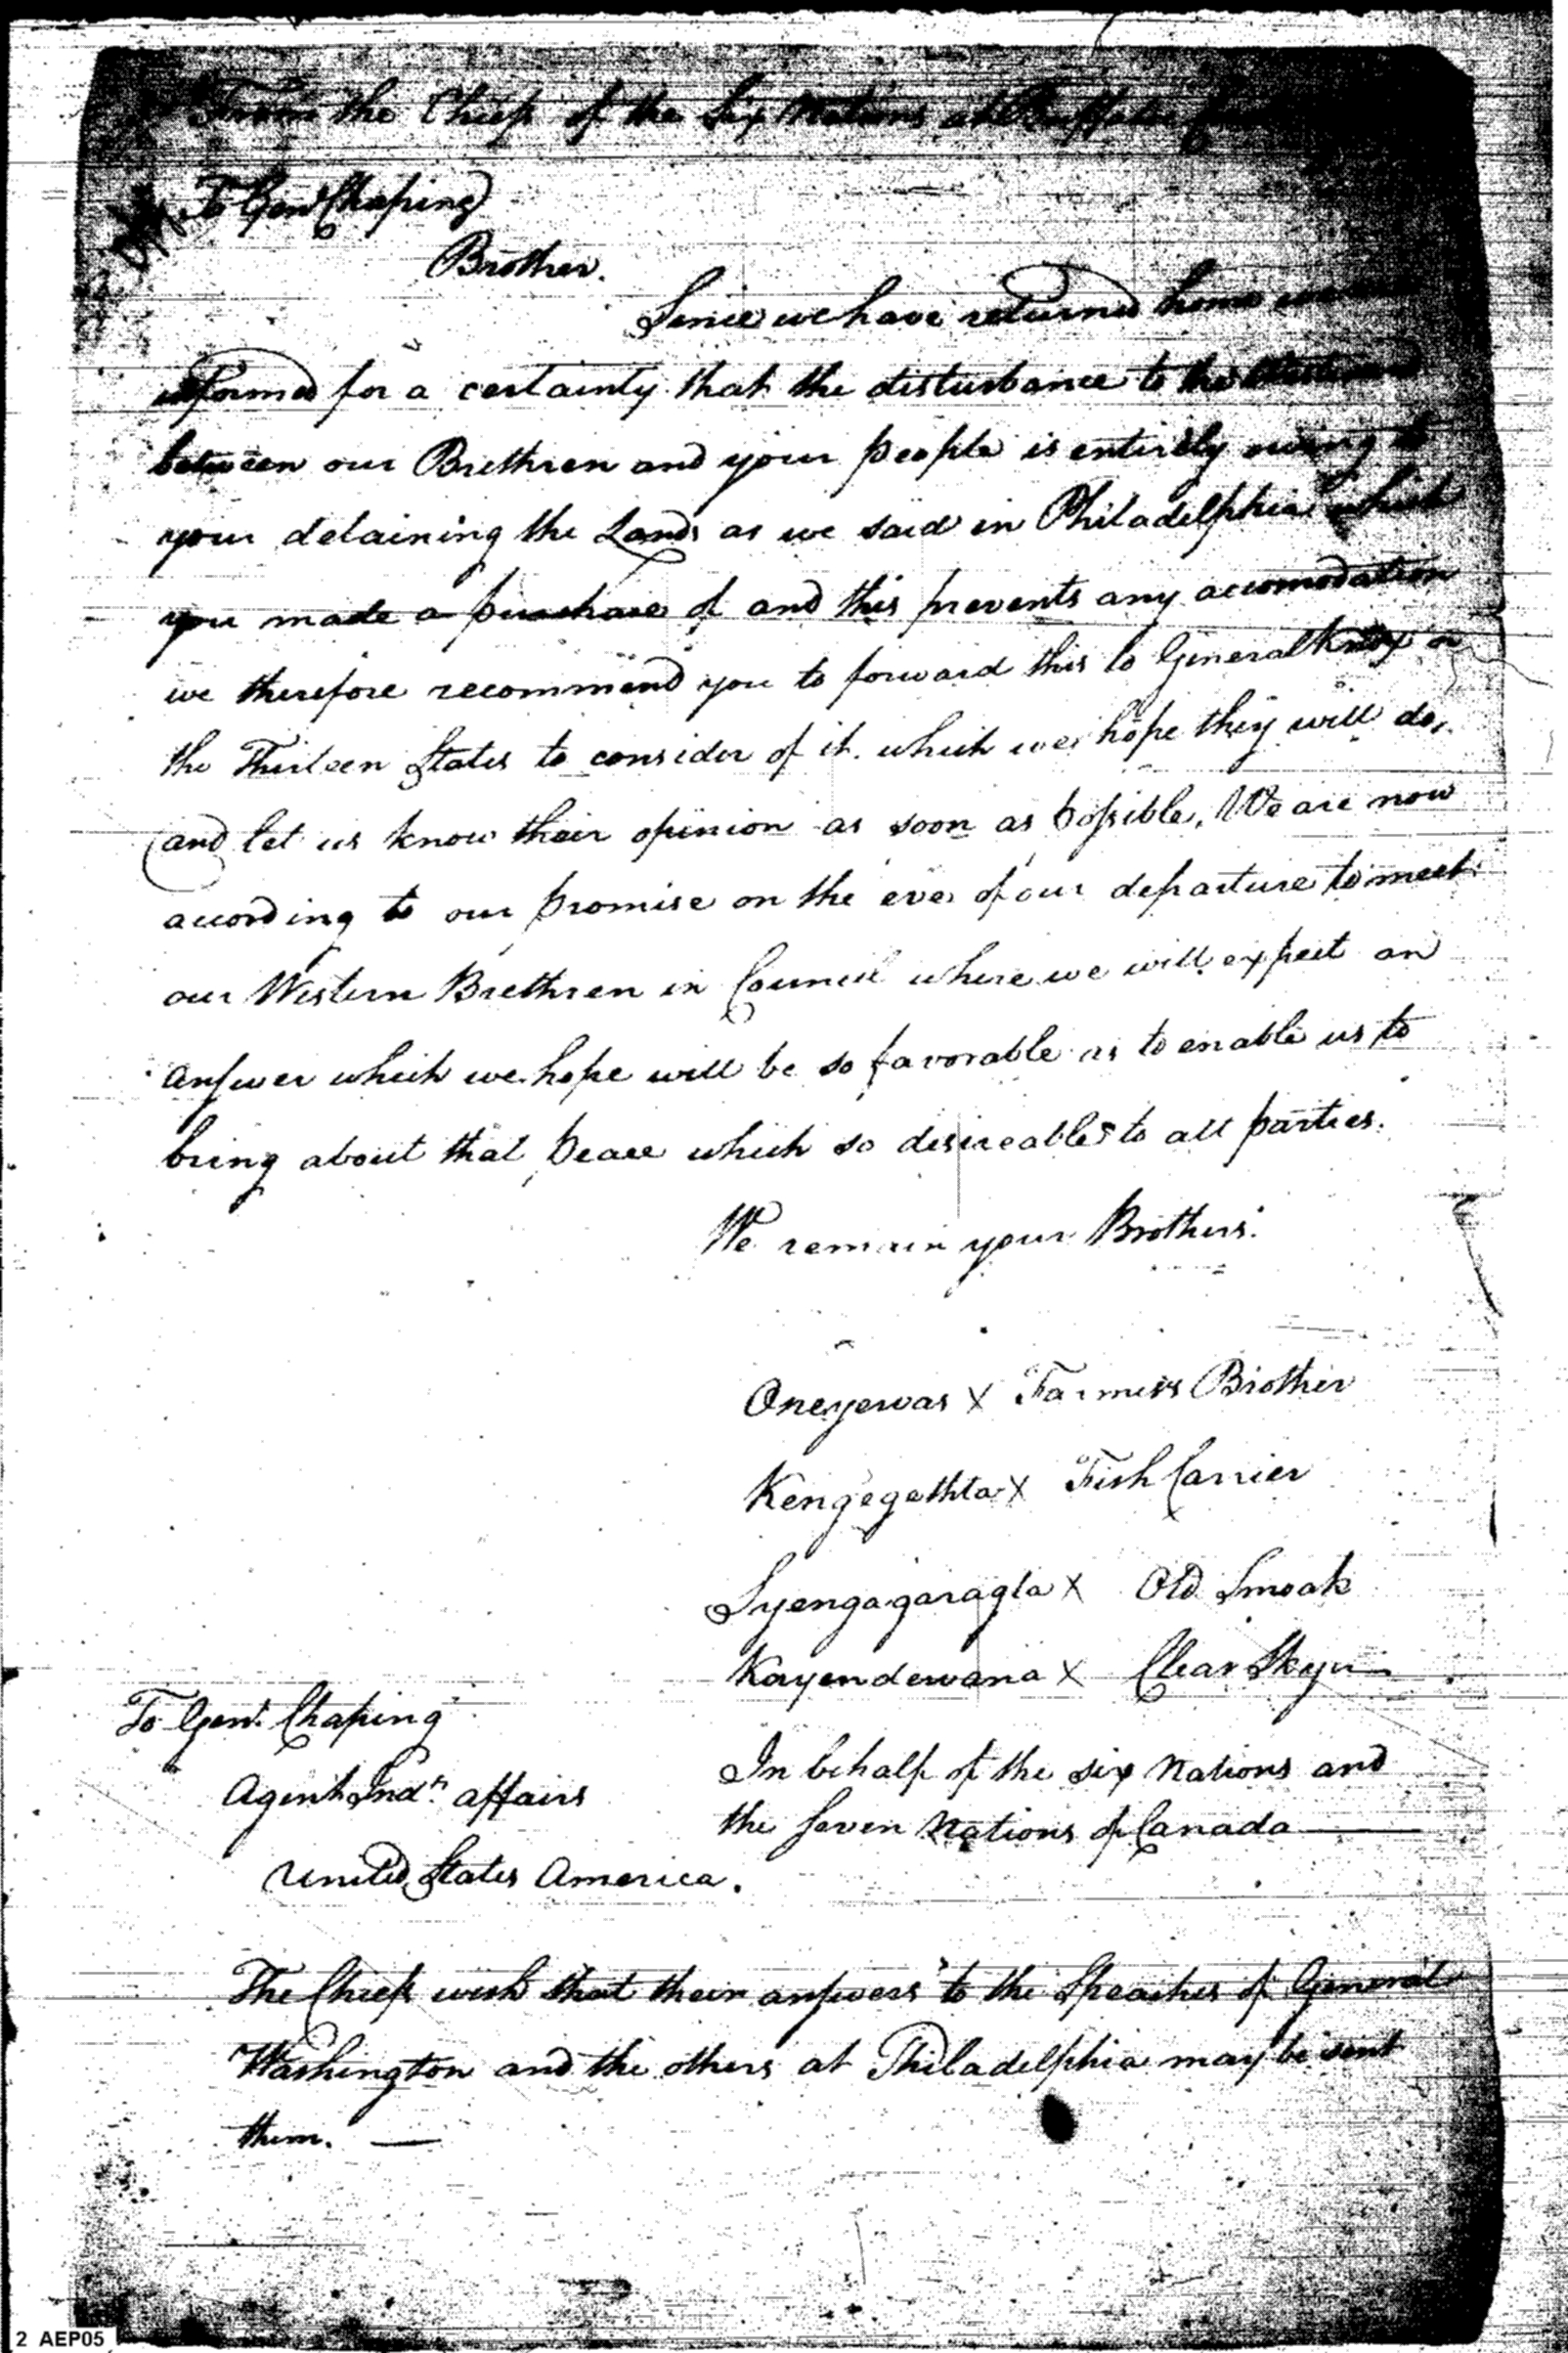 From the Chiefs of the Six Nations at Buffaloe
To Genl Chaping
Brother.
Since we have returned home we
informed for a certainty that the disturbance to the Westward
between our Brethren and your people is entirely owing to
your detaining the Lands as we said in Philadelphia which
you made a purchase of and this prevents any accomodation
we therefore recommend you to forward this to General Knox or
the Thirteen States to consider of it. which we hope they will do,
and let us know their opinion as soon as possible, We are now
according to our promise on the eve of our departure to meet
our Western Brethren in Council where we will expect an
answer which we hope will be so favorable as to enable us to
bring about that peace which so desireable to all parties.
We remain your Brothers.
Oneyewas X Farmers Brother
Kengegethta X Fish Carrier
Syengagaragta X Old Smoak
Kayendewana X Clear Skye
To Genl. Chaping
Agent Indn affairs
United States America.
In behalf of the six Nations and
the seven Nations of Canada
The Chiefs wish that their answers to the Speaches of General
Washington and the others at Philadelphia may be sent
them.
2 AEP05